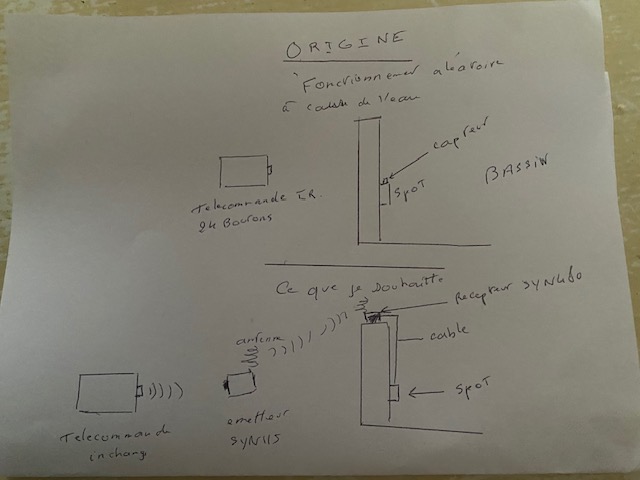 ORIGINE
Fonctionnement aléatoire
à cause de l'eau
capteur
SPOT
BASSIN
Telecommande I.R.
24 Boutons
Ce que je souhaitte
Recepteur SYN480
antenne
cable
SPOT
emetteur
SYN115
Telecommande
inchang